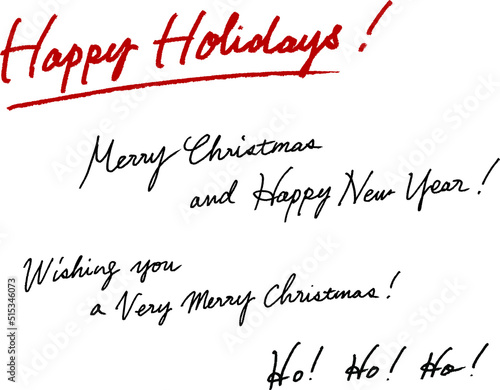 Happy Holidays!
Merry Christmas
and Happy New Year!
Wishing you
a Very Merry Christmas!
Ho! Ho! Ho!
Adobe Stock | #515346073